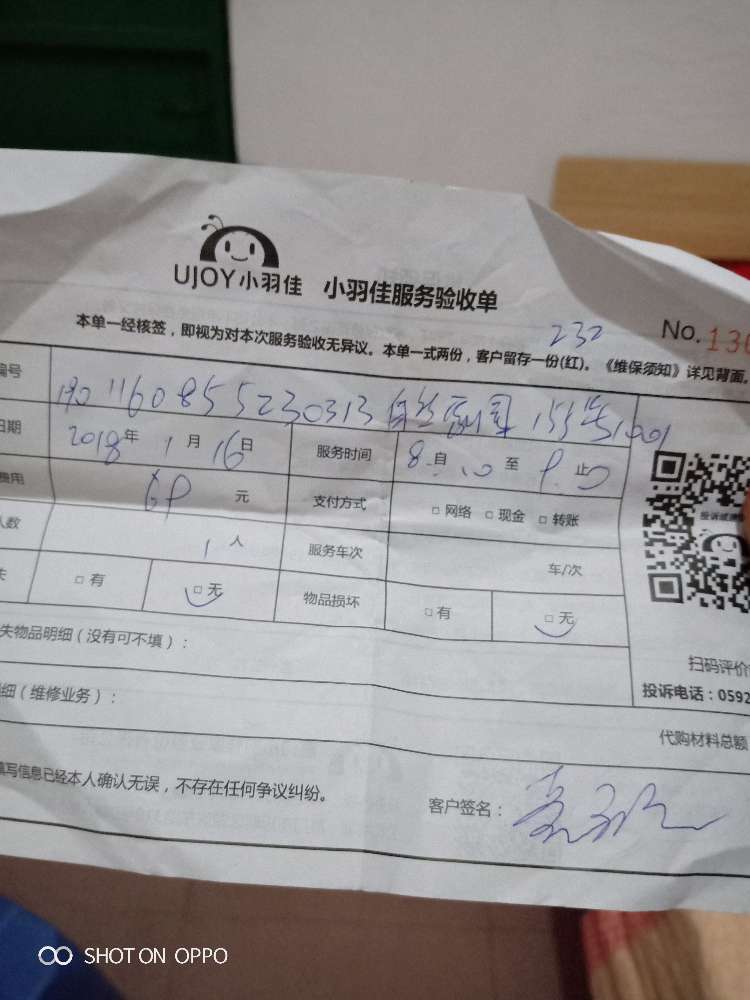 UJOY小羽佳 小羽佳服务验收单
232
No. 130
本单一经核签，即视为对本次服务验收无异议。本单一式两份，客户留存一份(红)。《维保须知》详见背面。
编号
日期 2018年1月16日 服务时间 8:10 自 至 9:00 止
费用 69 元 支付方式 □ 网络 □ 现金 □ 转账
人数 1 人 服务车次 车/次
失 □ 有 □ 无 物品损坏 □ 有 □ 无
失物品明细（没有可不填）：
扫码评价
细（维修业务）：
投诉电话：0592
代购材料总额
填写信息已经本人确认无误，不存在任何争议纠纷。
客户签名：
SHOT ON OPPO